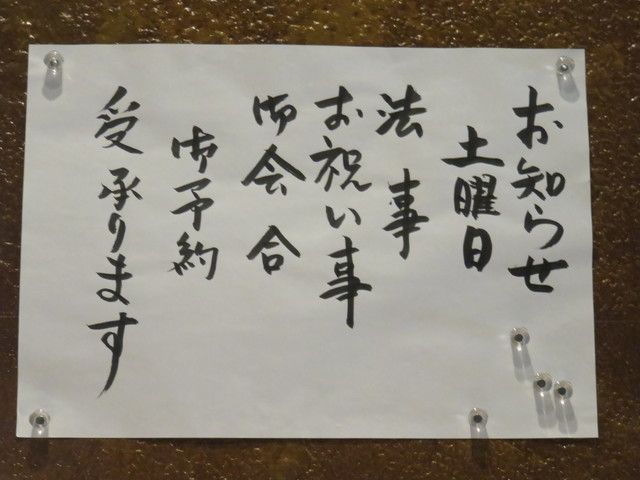 お知らせ
土曜日
法事
お祝い事
御会合
御予約
受承ります